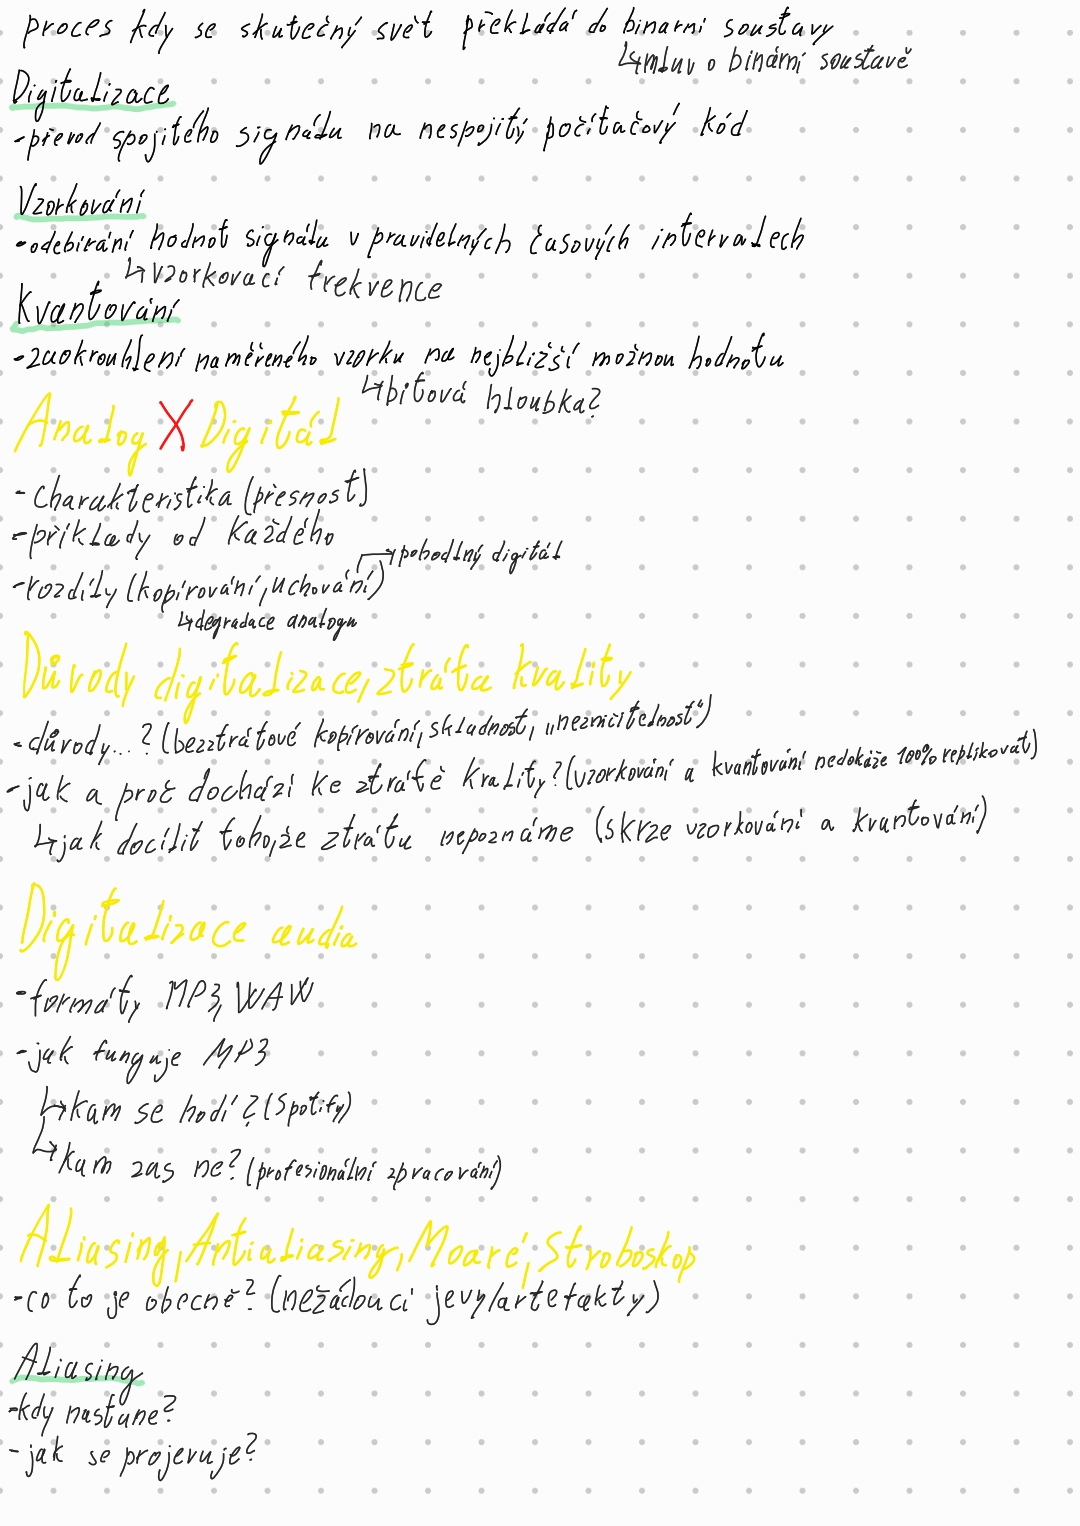 proces kdy se skutečný svět překládá do binarni soustavy
↳mluv o binární soustavě
Digitalizace
-převod spojitého signálu na nespojitý počítačový kód
Vzorkování
-odebírání hodnot signálu v pravidelných časových intervalech
↳vzorkovací frekvence
Kvantování
-zaokrouhlení naměřeného vzorku na nejbližší možnou hodnotu
↳bitová hloubka?
Analog X Digitál
-Charakteristika (přesnost)
-příklady od každého
→pohodlný digitál
-rozdíly (kopírování, uchování)
↳degradace analogu
Důvody digitalizace, ztráta kvality
-důvody...? (bezztrátové kopírování, skladnost, „nezničitelnost“)
-jak a proč dochází ke ztrátě kvality? (vzorkování a kvantování nedokáže 100% replikovat)
↳jak docílit toho, že ztrátu nepoznáme (skrze vzorkování a kvantování)
Digitalizace audia
-formáty MP3, WAW
-jak funguje MP3
↳kam se hodí? (Spotify)
↳kam zas ne? (profesionální zpracování)
Aliasing, Antialiasing, Moaré, Stroboskop
-co to je obecně? (nežádoucí jevy/artefakty)
Aliasing
-kdy nastane?
-jak se projevuje?